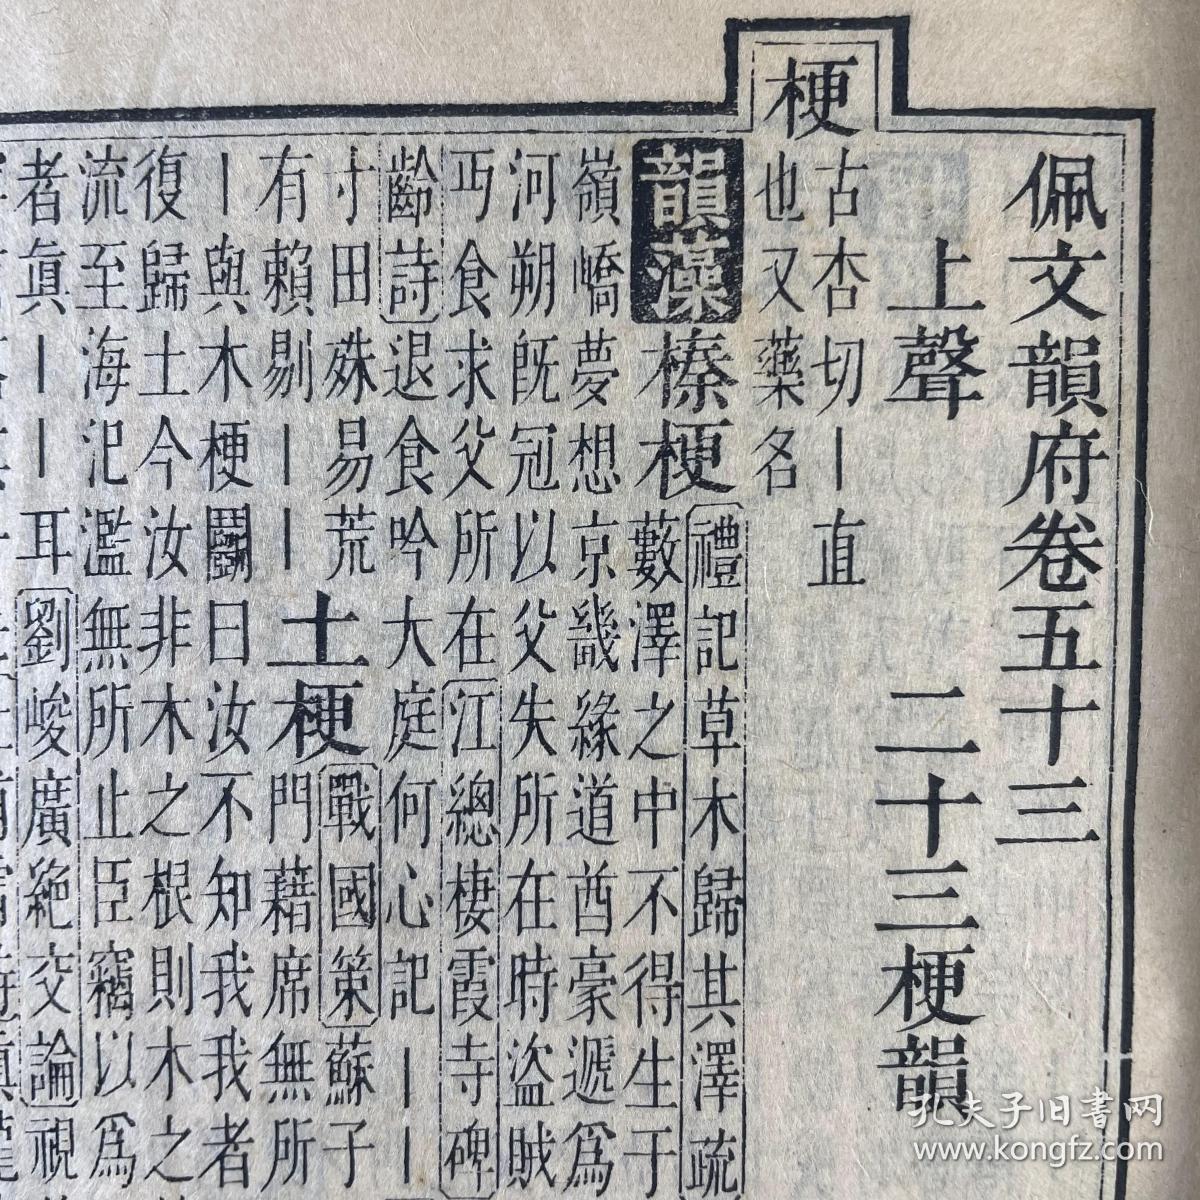 佩文韻府卷五十三
上聲 二十三梗韻
梗
古杏切丨直
也又藥名
韻藻
榛梗
禮記草木歸其澤疏
藪澤之中不得生于
嶺嶠夢想京畿緣道酋豪遞爲
河朔旣冠以父失所在時盜賊
丐食求父所在江總棲霞寺碑
齡詩退食吟大庭何心記丨丨
寸田殊易荒
有賴剔丨丨
土梗
戰國策蘇子
門藉席無所
丨與木梗鬭曰汝不知我我者
復歸土今汝非木之根則木之
流至海汜濫無所止臣竊以爲
者眞丨丨耳劉峻廣絶交論視
孔夫子旧書网
www.kongfz.com